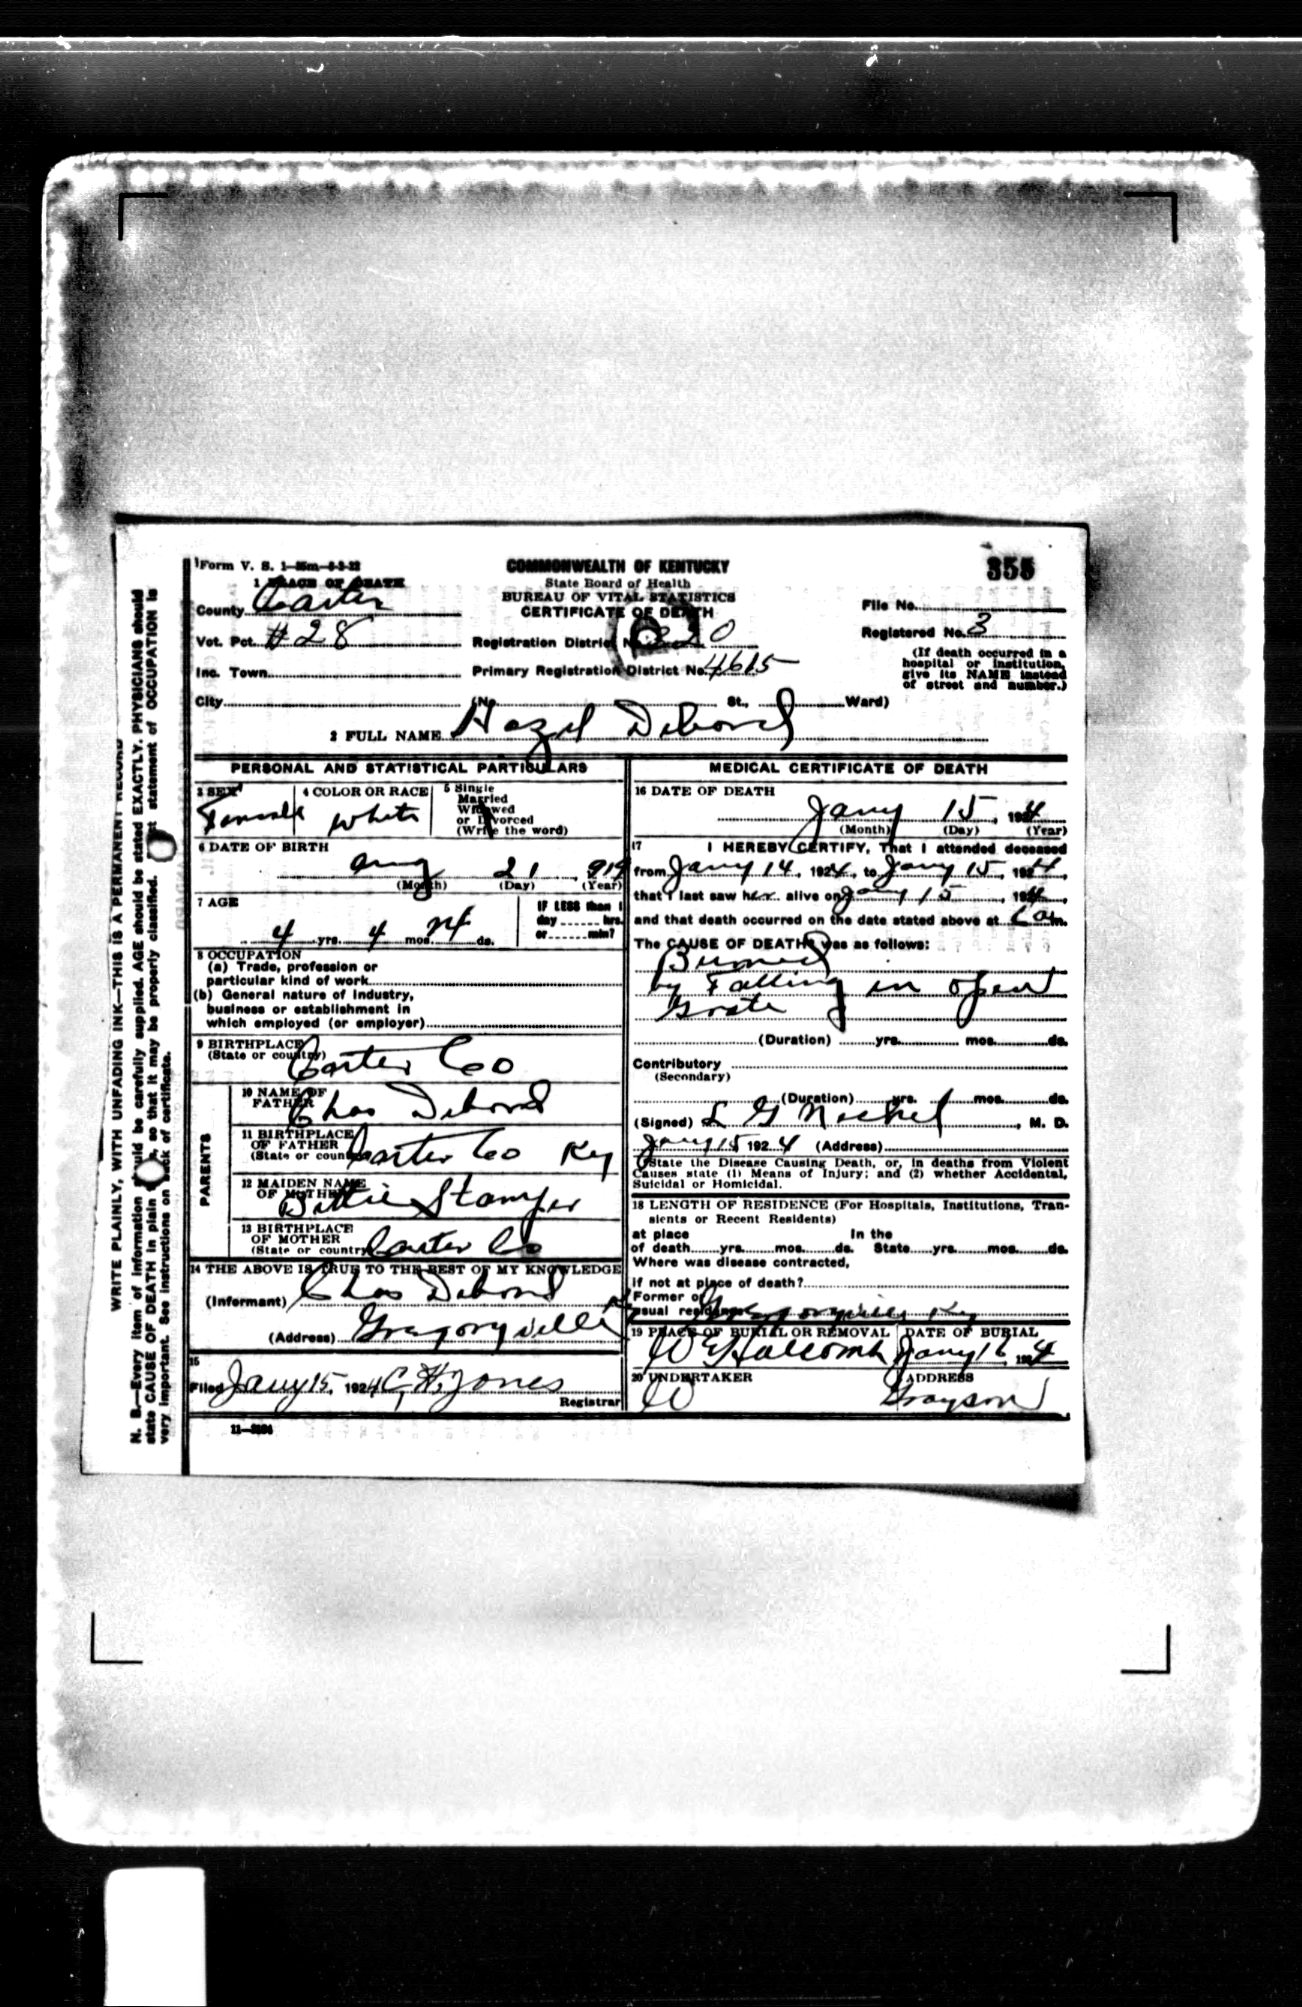 Form V. S. 1—35m—6-3-22
COMMONWEALTH OF KENTUCKY
355
1 PLACE OF DEATH
State Board of Health
BUREAU OF VITAL STATISTICS
CERTIFICATE OF DEATH
County Carter
File No.
Vot. Pct. #28
Registration District No. 320
Registered No. 3
Inc. Town
Primary Registration District No. 4615
(If death occurred in a
hospital or institution,
give its NAME instead
of street and number.)
City (No. St., Ward)
2 FULL NAME Hazel Debord
PERSONAL AND STATISTICAL PARTICULARS
3 SEX Female
4 COLOR OR RACE White
5 Single
Married
Widowed
or Divorced
(Write the word)
6 DATE OF BIRTH
Aug 21, 919
(Month) (Day) (Year)
7 AGE
4 yrs. 4 mos. 24 ds.
IF LESS than 1
day hrs.
or min?
8 OCCUPATION
(a) Trade, profession or
particular kind of work
(b) General nature of industry,
business or establishment in
which employed (or employer)
9 BIRTHPLACE
(State or country) Carter Co
PARENTS
10 NAME OF
FATHER Chas Debord
11 BIRTHPLACE
OF FATHER
(State or country) Carter Co Ky
12 MAIDEN NAME
OF MOTHER Bettie Stamper
13 BIRTHPLACE
OF MOTHER
(State or country) Carter Co
14 THE ABOVE IS TRUE TO THE BEST OF MY KNOWLEDGE
(Informant) Chas Debord
(Address) Gregoryville Ky
15
Filed Jany 15, 1924 C. H. Jones
Registrar
11—3194
MEDICAL CERTIFICATE OF DEATH
16 DATE OF DEATH
Jany 15, 1924
(Month) (Day) (Year)
17 I HEREBY CERTIFY, That I attended deceased
from Jany 14, 1924, to Jany 15, 1924,
that I last saw her alive on Jany 15, 1924,
and that death occurred on the date stated above at 6 am.
The CAUSE OF DEATH* was as follows:
Burned
by Falling in open
Grate
(Duration) yrs. mos. ds.
Contributory
(Secondary)
(Duration) yrs. mos. ds.
(Signed) L G , M. D.
Jany 15 1924 (Address)
*State the Disease Causing Death, or, in deaths from Violent
Causes state (1) Means of Injury; and (2) whether Accidental,
Suicidal or Homicidal.
18 LENGTH OF RESIDENCE (For Hospitals, Institutions, Tran-
sients or Recent Residents)
at place In the
of death yrs. mos. ds. State yrs. mos. ds.
Where was disease contracted,
if not at place of death?
Former or
usual residence Gregoryville Ky
19 PLACE OF BURIAL OR REMOVAL DATE OF BURIAL
W E Halcomb Jany 16, 1924
20 UNDERTAKER ADDRESS
W Grayson
WRITE PLAINLY, WITH UNFADING INK—THIS IS A PERMANENT RECORD
N. B.—Every item of information should be carefully supplied. AGE should be stated EXACTLY. PHYSICIANS should
state CAUSE OF DEATH in plain so that it may be properly classified. statement of OCCUPATION is
very important. See instructions on back of certificate.